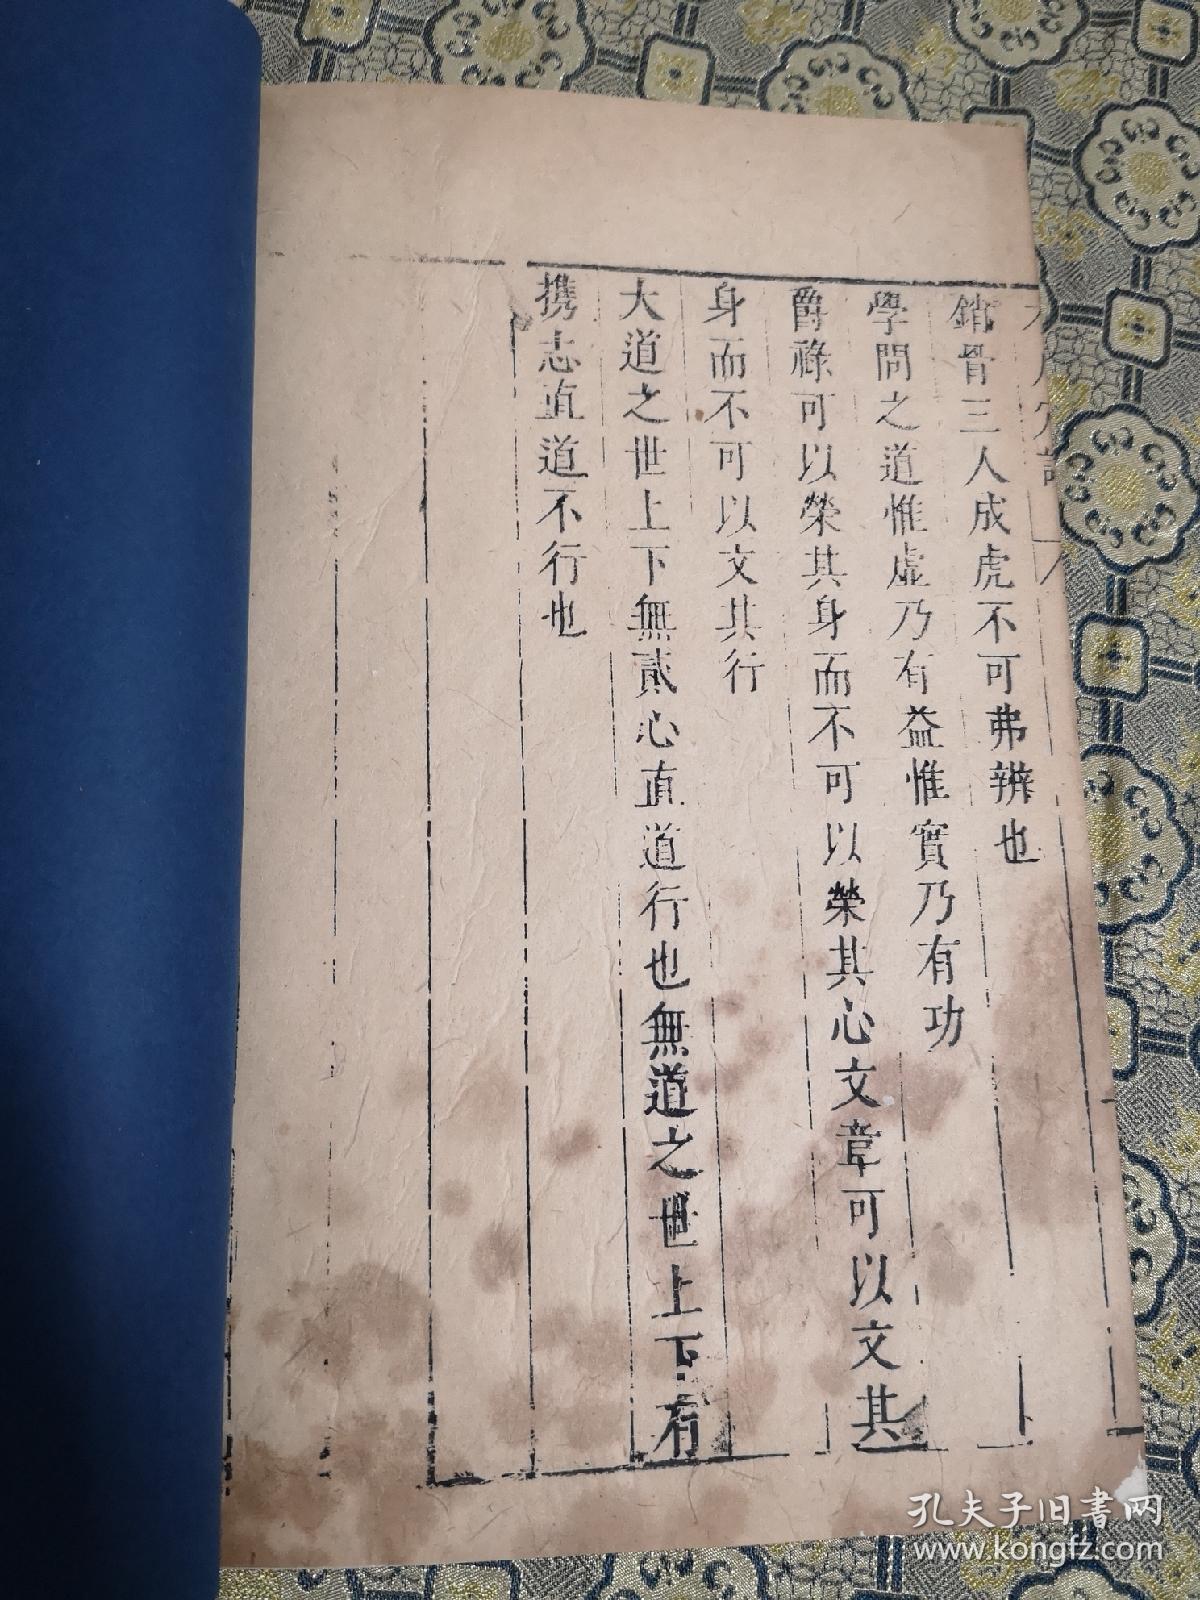 銷骨三人成虎不可弗辨也
學問之道惟虛乃有益惟實乃有功
爵祿可以榮其身而不可以榮其心文章可以文其
身而不可以文其行
大道之世上下無貳心直道行也無道之世上下有
携志直道不行也
孔夫子旧書网
www.kongfz.com